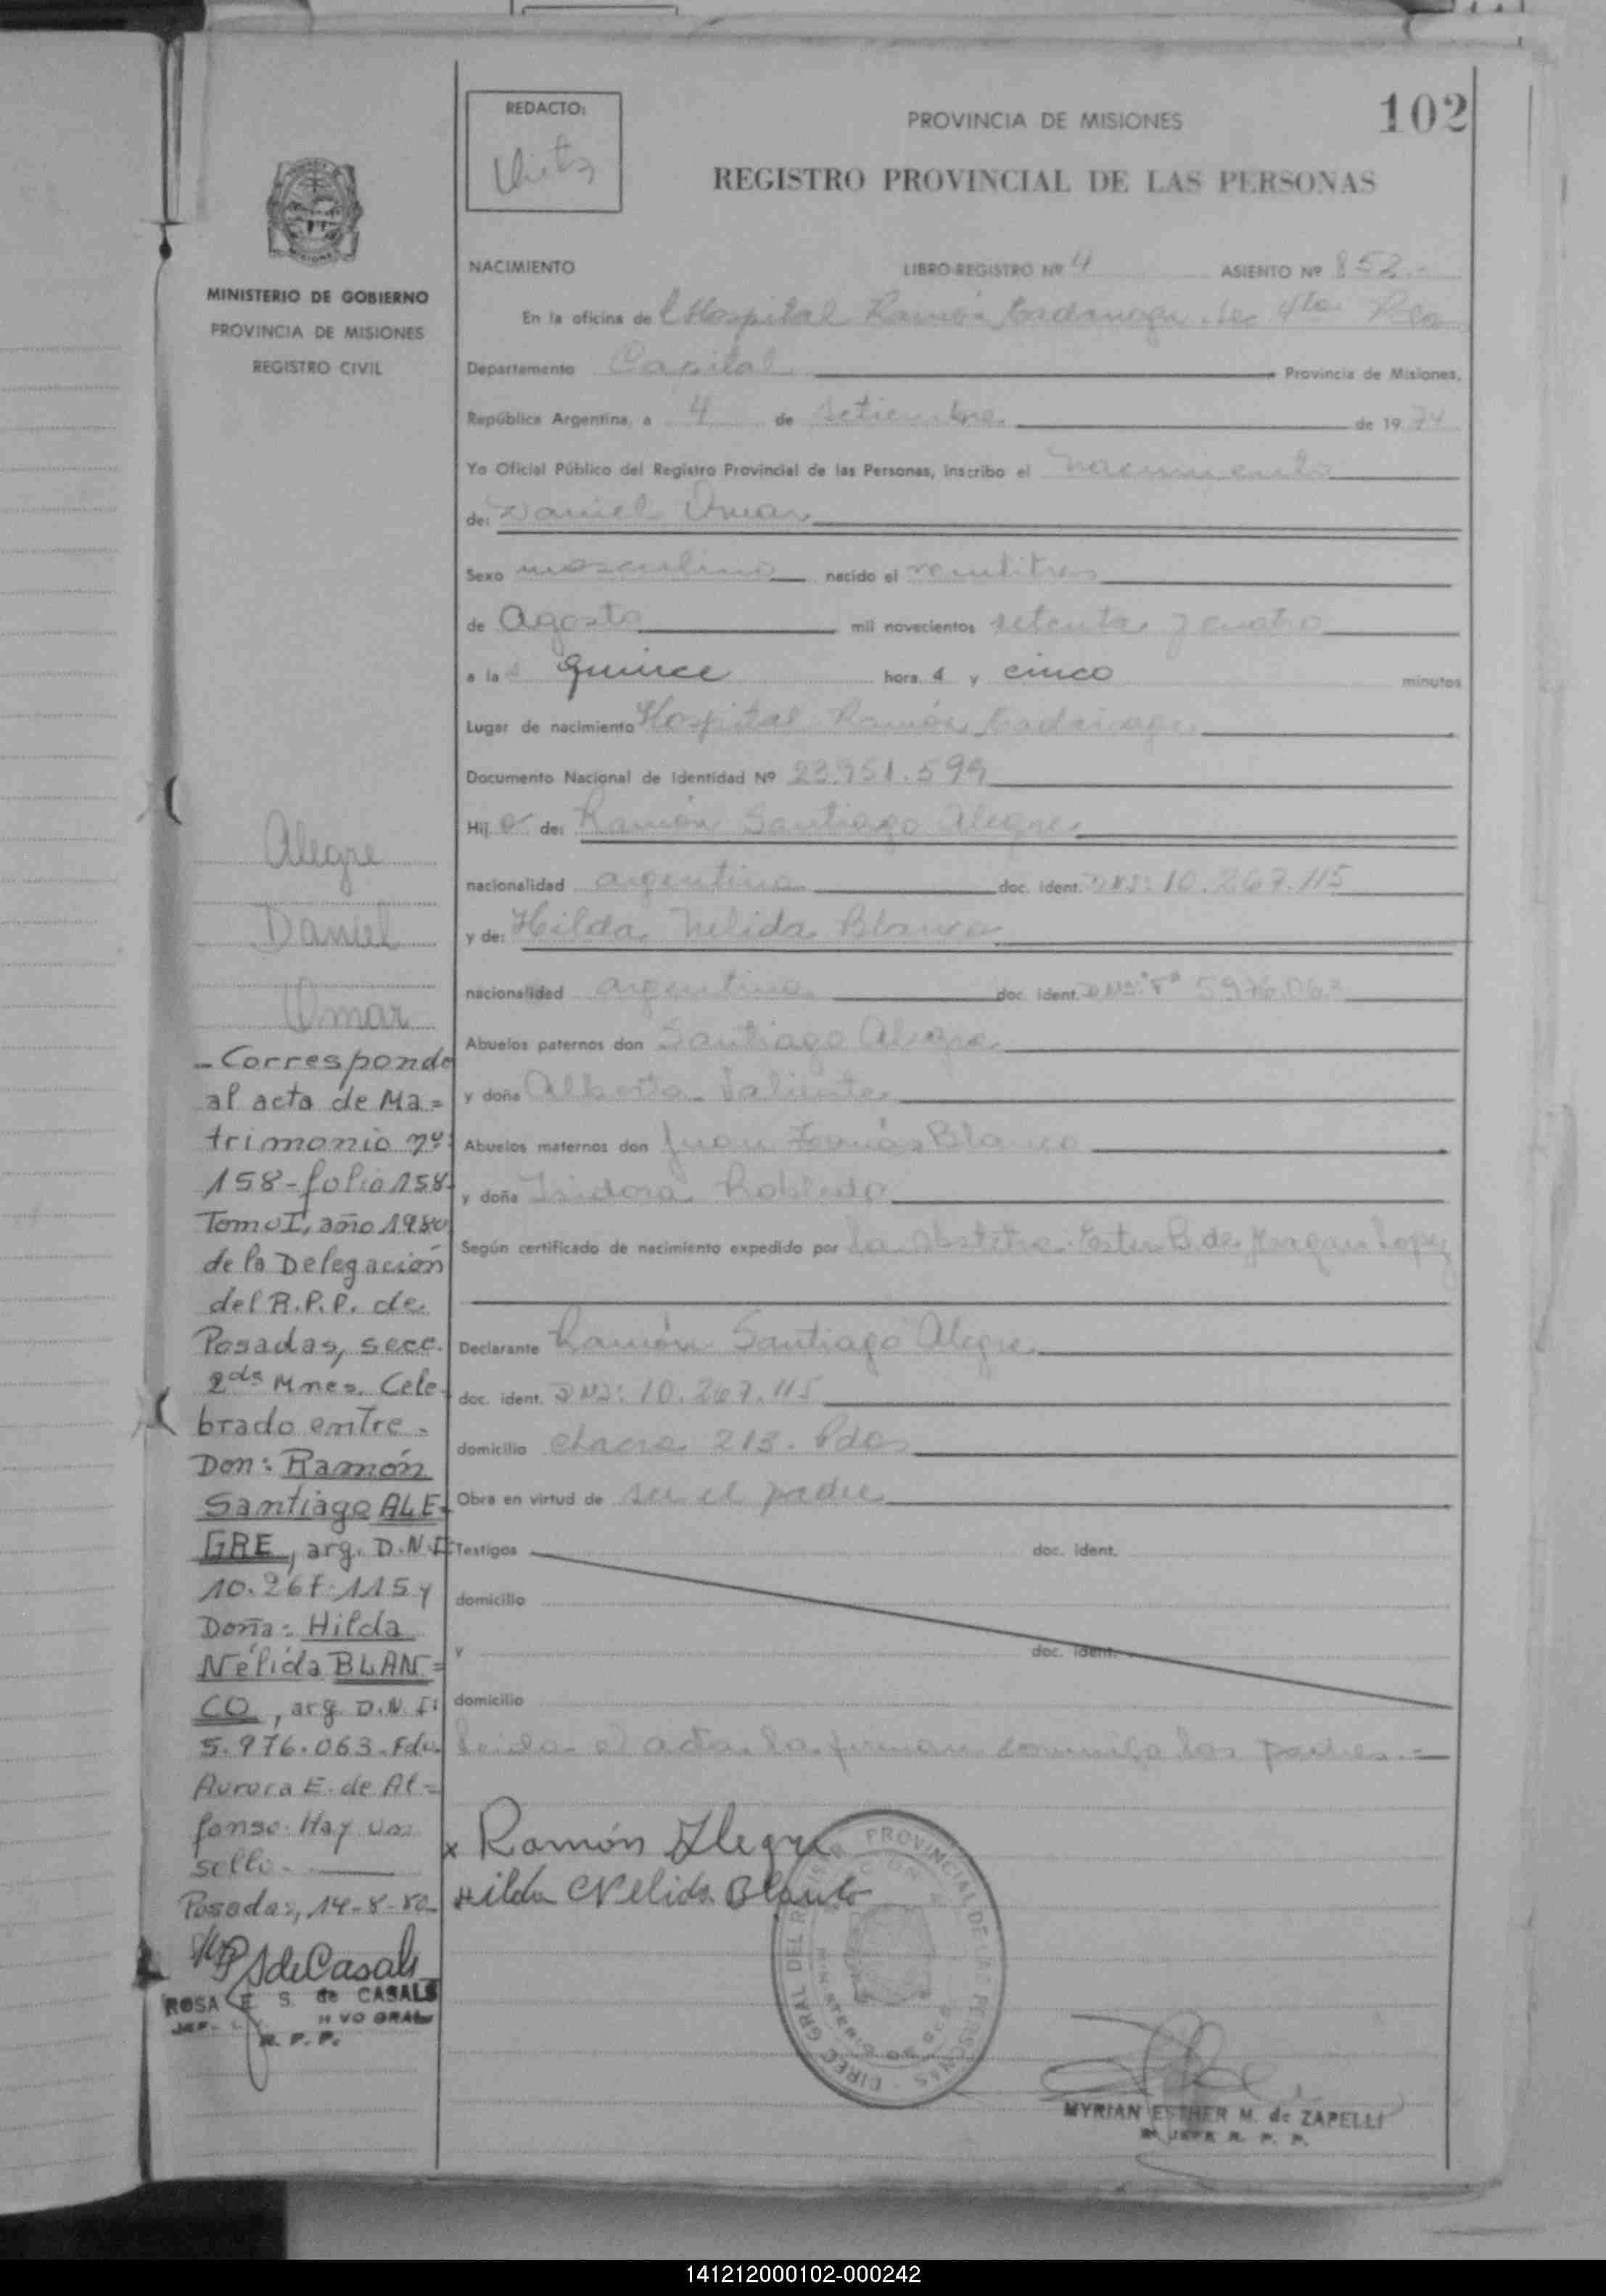 102
REDACTO:
PROVINCIA DE MISIONES
REGISTRO PROVINCIAL DE LAS PERSONAS
MINISTERIO DE GOBIERNO
PROVINCIA DE MISIONES
REGISTRO CIVIL
NACIMIENTO LIBRO-REGISTRO Nº 4 ASIENTO Nº 852.-
En la oficina de l Hospital Ramón Madariaga
Departamento Capital Provincia de Misiones,
República Argentina, a 4 de setiembre de 19 74
Yo Oficial Público del Registro Provincial de las Personas, inscribo el nacimiento
de: Daniel Omar
Sexo masculino nacido el veintitres
de Agosto mil novecientos setenta y cuatro
a la s quince hora s y cinco minutos
Lugar de nacimiento Hospital Ramón Madariaga
Documento Nacional de Identidad Nº 23.951.599
Hij o de: Ramón Santiago Alegre
nacionalidad argentina doc. ident. DNI: 10.267.115
y de: Hilda Nelida Blanco
nacionalidad argentina doc. ident. 5976.063
Abuelos paternos don Santiago Alegre
y doña Alberta
Abuelos maternos don Juan Blanco
y doña Isidora Robledo
Según certificado de nacimiento expedido por la obstetra Ester B. de Lopez
Declarante Ramón Santiago Alegre
doc. ident. DNI: 10.267.115
domicilio chacra 213. Pdas
Obra en virtud de ser el padre
Testigos doc. ident.
domicilio
y doc. ident.
domicilio
Leida el acta la firman conmigo los padres.=
x Ramón Alegre
Hilda Nelida Blanco
DIREC. GRAL. DEL REGISTR. PROVINCIAL DE LAS PERSONAS
MYRIAN ESTHER M. de ZAPELLI
JEFE R. P. P.
Alegre
Daniel
Omar
- Corresponde
al acta de Ma=
trimonio nº:
158-folio 158-
Tomo I, año 1980
de la Delegación
del R.P.P. de
Posadas, secc.
2da Mnes. Cele-
brado entre.
Don: Ramón
Santiago ALE-
GRE, arg. D.N.I:
10.267.115 y
Doña: Hilda
Nélida BLAN=
CO, arg. D.N.I:
5.976.063. Fdo.
Aurora E. de Al=
fonso. Hay un
sello.
Posadas, 14-8-80
ROSA E. S. de CASALS
R. P. P.
141212000102-000242